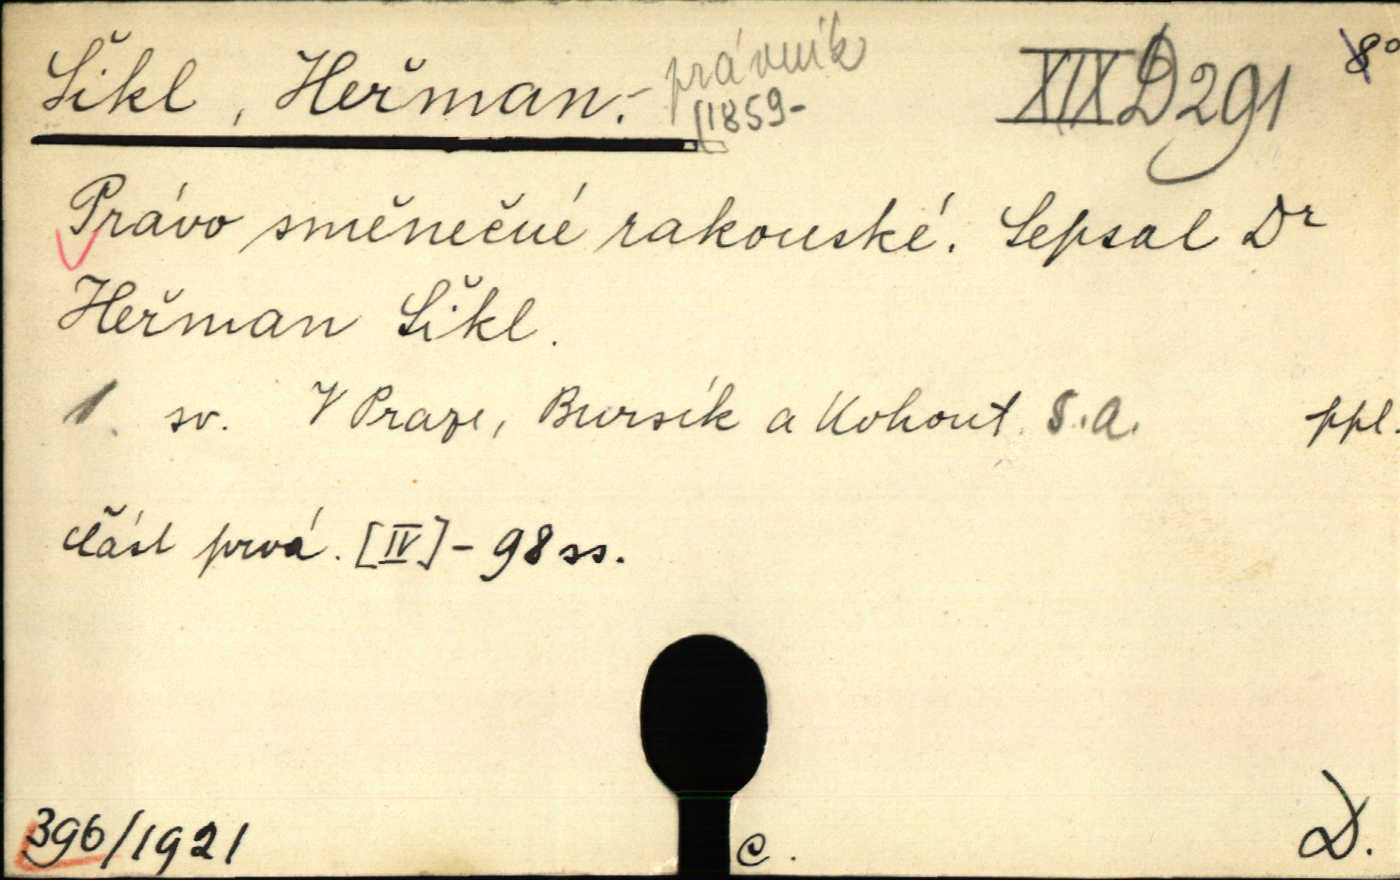 Šikl, Heřman.- právník XIX D 291 8°
[1859-
Právo směnečné rakouské. Sepsal Dr
Heřman Šikl.
1. sv. V Praze, Bursík a Kohout s.a. ppl.
část prvá. [IV] - 98 ss.
396/1921 c. D.